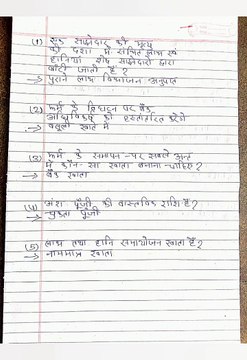 (1) एक साझेदार की मृत्यु
की दशा में संचित लाभ एवं
हानियां शेष साझेदारों द्वारा
बाँटी जाती हैं?
→ पुराने लाभ विभाजन अनुपात
(2) फर्म के विघटन पर बैंक
अधिविकर्ष को हस्तांतरित करेंगे
→ वसूली खाते में
(3) फर्म के समापन पर सबसे अन्त
में कौन-सा खाता बनाना चाहिए?
→ बैंक खाता
(4) अंश पूँजी की वास्तविक राशि है?
→ चुकता पूँजी
(5) लाभ तथा हानि समायोजन खाता है?
→ नाममात्र खाता